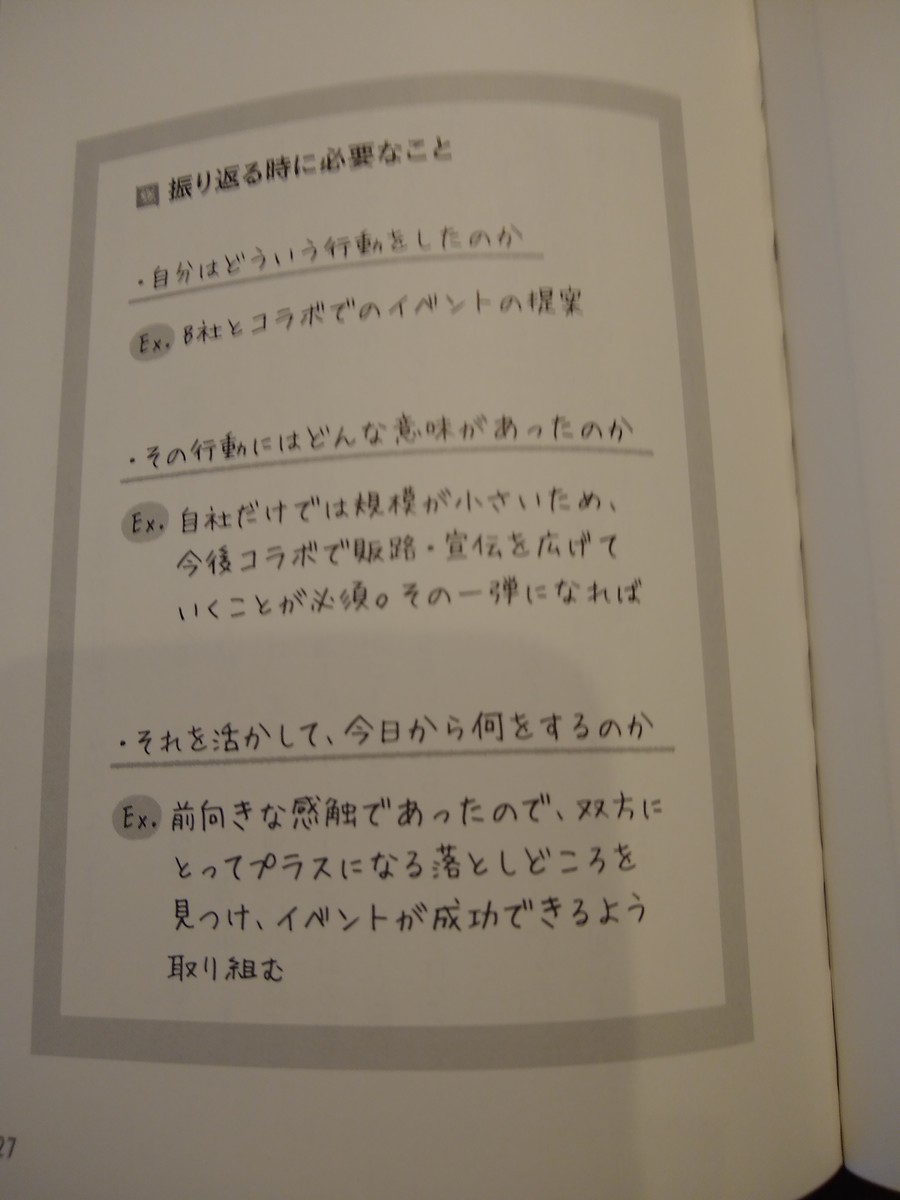 振り返る時に必要なこと
・自分はどういう行動をしたのか
Ex. B社とコラボでのイベントの提案
・その行動にはどんな意味があったのか
Ex. 自社だけでは規模が小さいため、
今後コラボで販路・宣伝を広げて
いくことが必須。その一弾になれば
・それを活かして、今日から何をするのか
Ex. 前向きな感触であったので、双方に
とってプラスになる落としどころを
見つけ、イベントが成功できるよう
取り組む
27